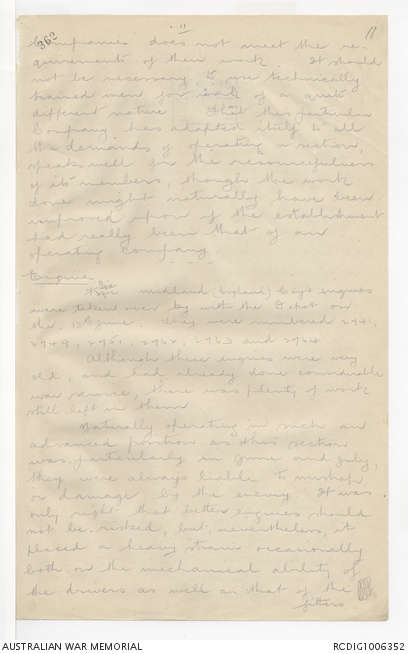 362
11
11
Companies does not meet the re-
quirements of their work. It should
not be necessary to use technically
trained men for work of a quite
different nature. That this particular
Company has adapted itself to all
the demands of operating a section,
speaks well for the resourcefulness
of its members, though the work
done might naturally have been
improved upon if the establishment
had really been that of an
operating Company.
Engines
Midland (England) engines
were taken over by with the Depot on
the 12th June. They were numbered
2948, 2962, 2963 and 2964
Although these engines were very
old, and had already done considerable
war service, there was plenty of work
still left in them.
Naturally operating in such an
advanced position as this section
was, particularly in June and July,
they were always liable to mishap
or damage by the enemy. It was
only right that better engines should
not be risked, but, nevertheless, it
placed a heavy strain occasionally
both on the mechanical ability of
the drivers as well as that of the
fitters
AUSTRALIAN WAR MEMORIAL
RCDIG1006352